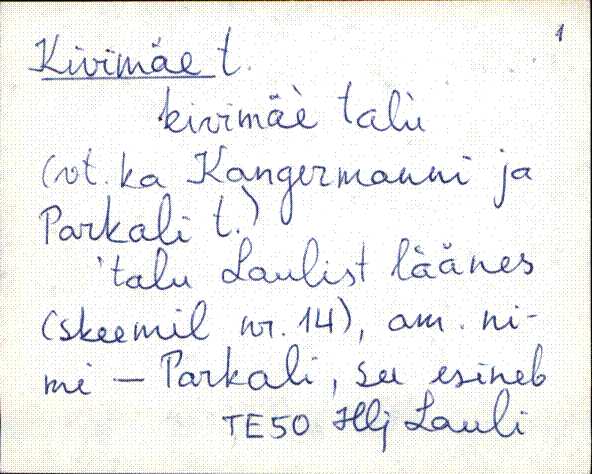 1
Kivimäe t.
kivimäè talù
(vt. ka Kangermanni ja
Parkali t.)
'talu Laulist läänes
(skeemil nr. 14), am. ni-
mi — Parkali, see esineb
TE50 Hlj Lauli